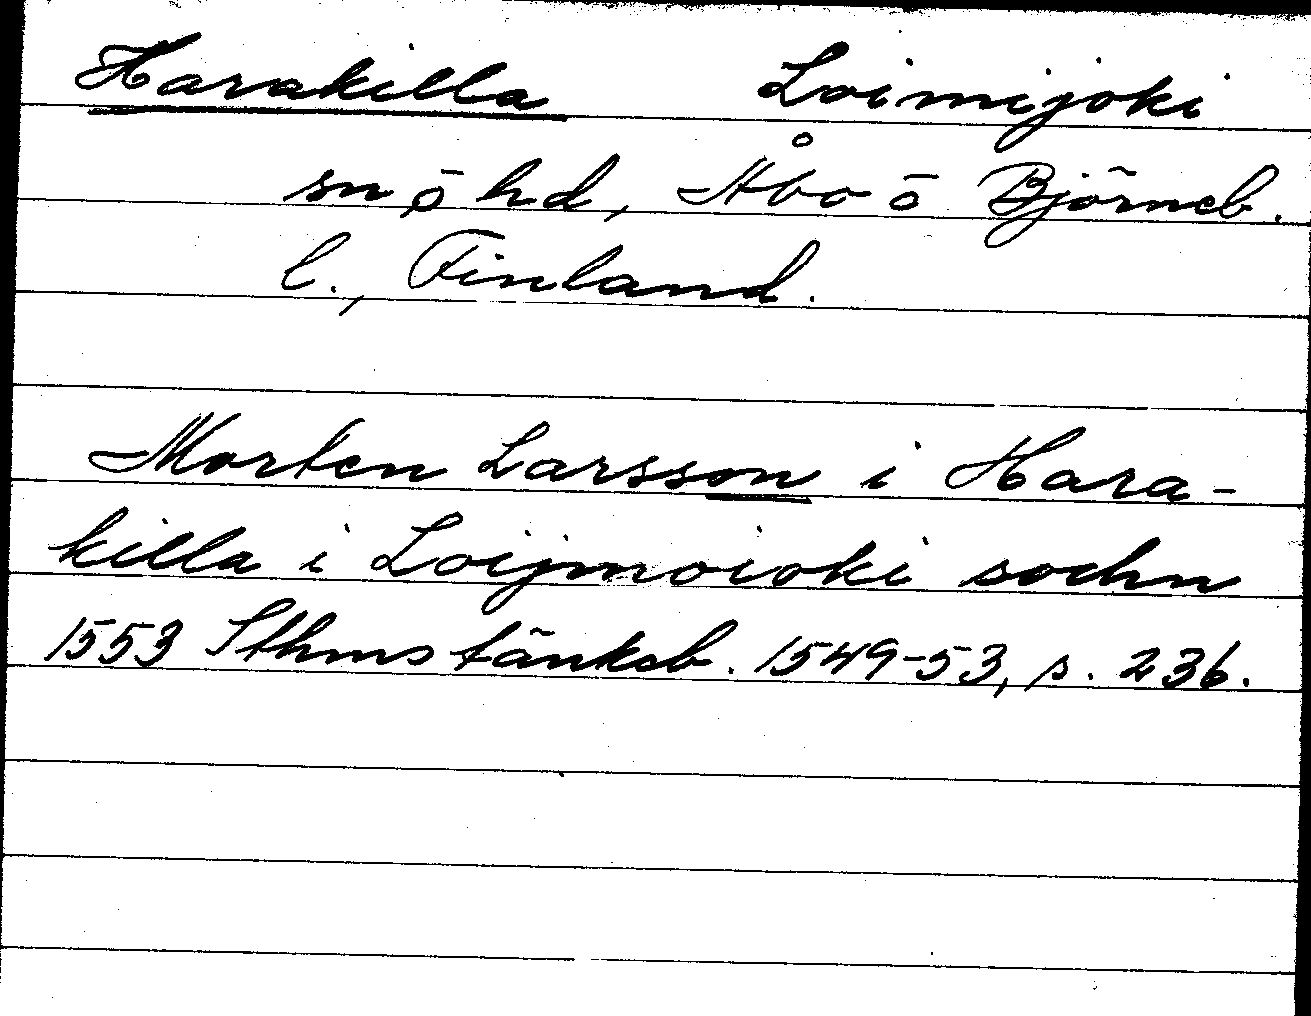 Harakilla Loimijoki
sn ō hd, Åbo ō Björneb.
l., Finland.
Morten Larsson i Hara-
killa i Loijmoioki sochn
1553 Sthms tänkeb. 1549-53, s. 236.